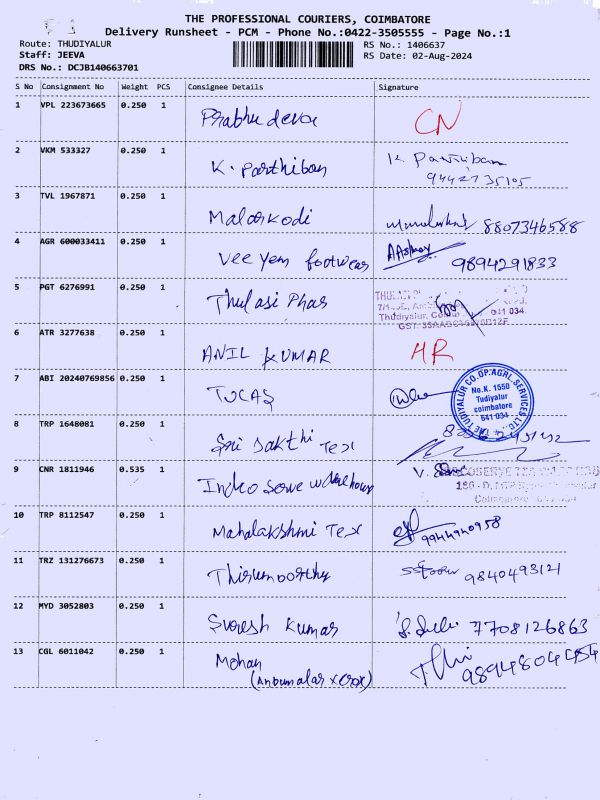 THE PROFESSIONAL COURIERS, COIMBATORE
Delivery Runsheet - PCM - Phone No.:0422-3505555 - Page No.:1
Route: THUDIYALUR RS No.: 1406637
Staff: JEEVA RS Date: 02-Aug-2024
DRS No.: DCJB140663701
S No Consignment No Weight PCS Consignee Details Signature
1 VPL 223673665 0.250 1 Prabhu deva CN
2 VKM 533327 0.250 1 K. Parthiban K. Parthiban
9442735105
3 TVL 1967871 0.250 1 Malarkodi 8807346588
4 AGR 600033411 0.250 1 Vee yem footwear 9894291833
5 PGT 6276991 0.250 1 Thulasi Phar
Thudiyalur, 641 034.
6 ATR 3277638 0.250 1 ANIL KUMAR HR
7 ABI 20240769856 0.250 1 TUCAS
THE TUDIYALUR CO.OP.AGRL.SERVICES LTD.
No.K. 1550
Tudiyalur
coimbatore
641 034
8 TRP 1648081 0.250 1 Sri Sakthi Tex
9 CNR 1811946 0.535 1 Indco Serve warehouse V.
10 TRP 8112547 0.250 1 Mahalakshmi Tex 9944940958
11 TRZ 131276673 0.250 1 Thirumoorthy 9840493121
12 MYD 3052803 0.250 1 Suresh Kumar 7708126863
13 CGL 6011042 0.250 1 Mohan
(Anbumalar Xerox)